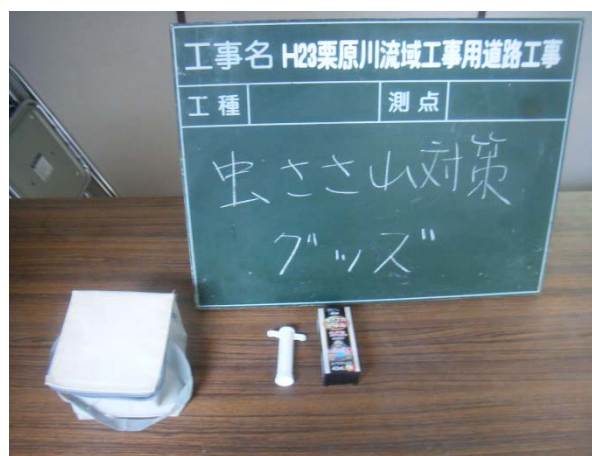 工事名 H23栗原川流域工事用道路工事
工種 測点
虫さされ対策
グッズ